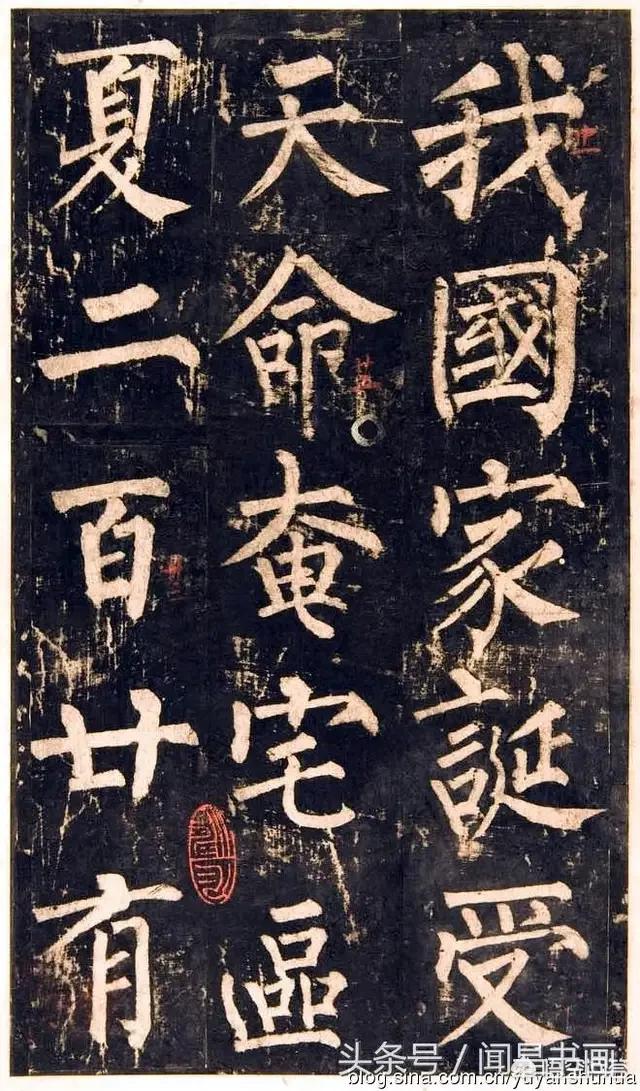 我國家誕受
天命奄宅區
夏二百廿有
头条号／闻易书画
blog.sina.com.cn/yuyanshuhua